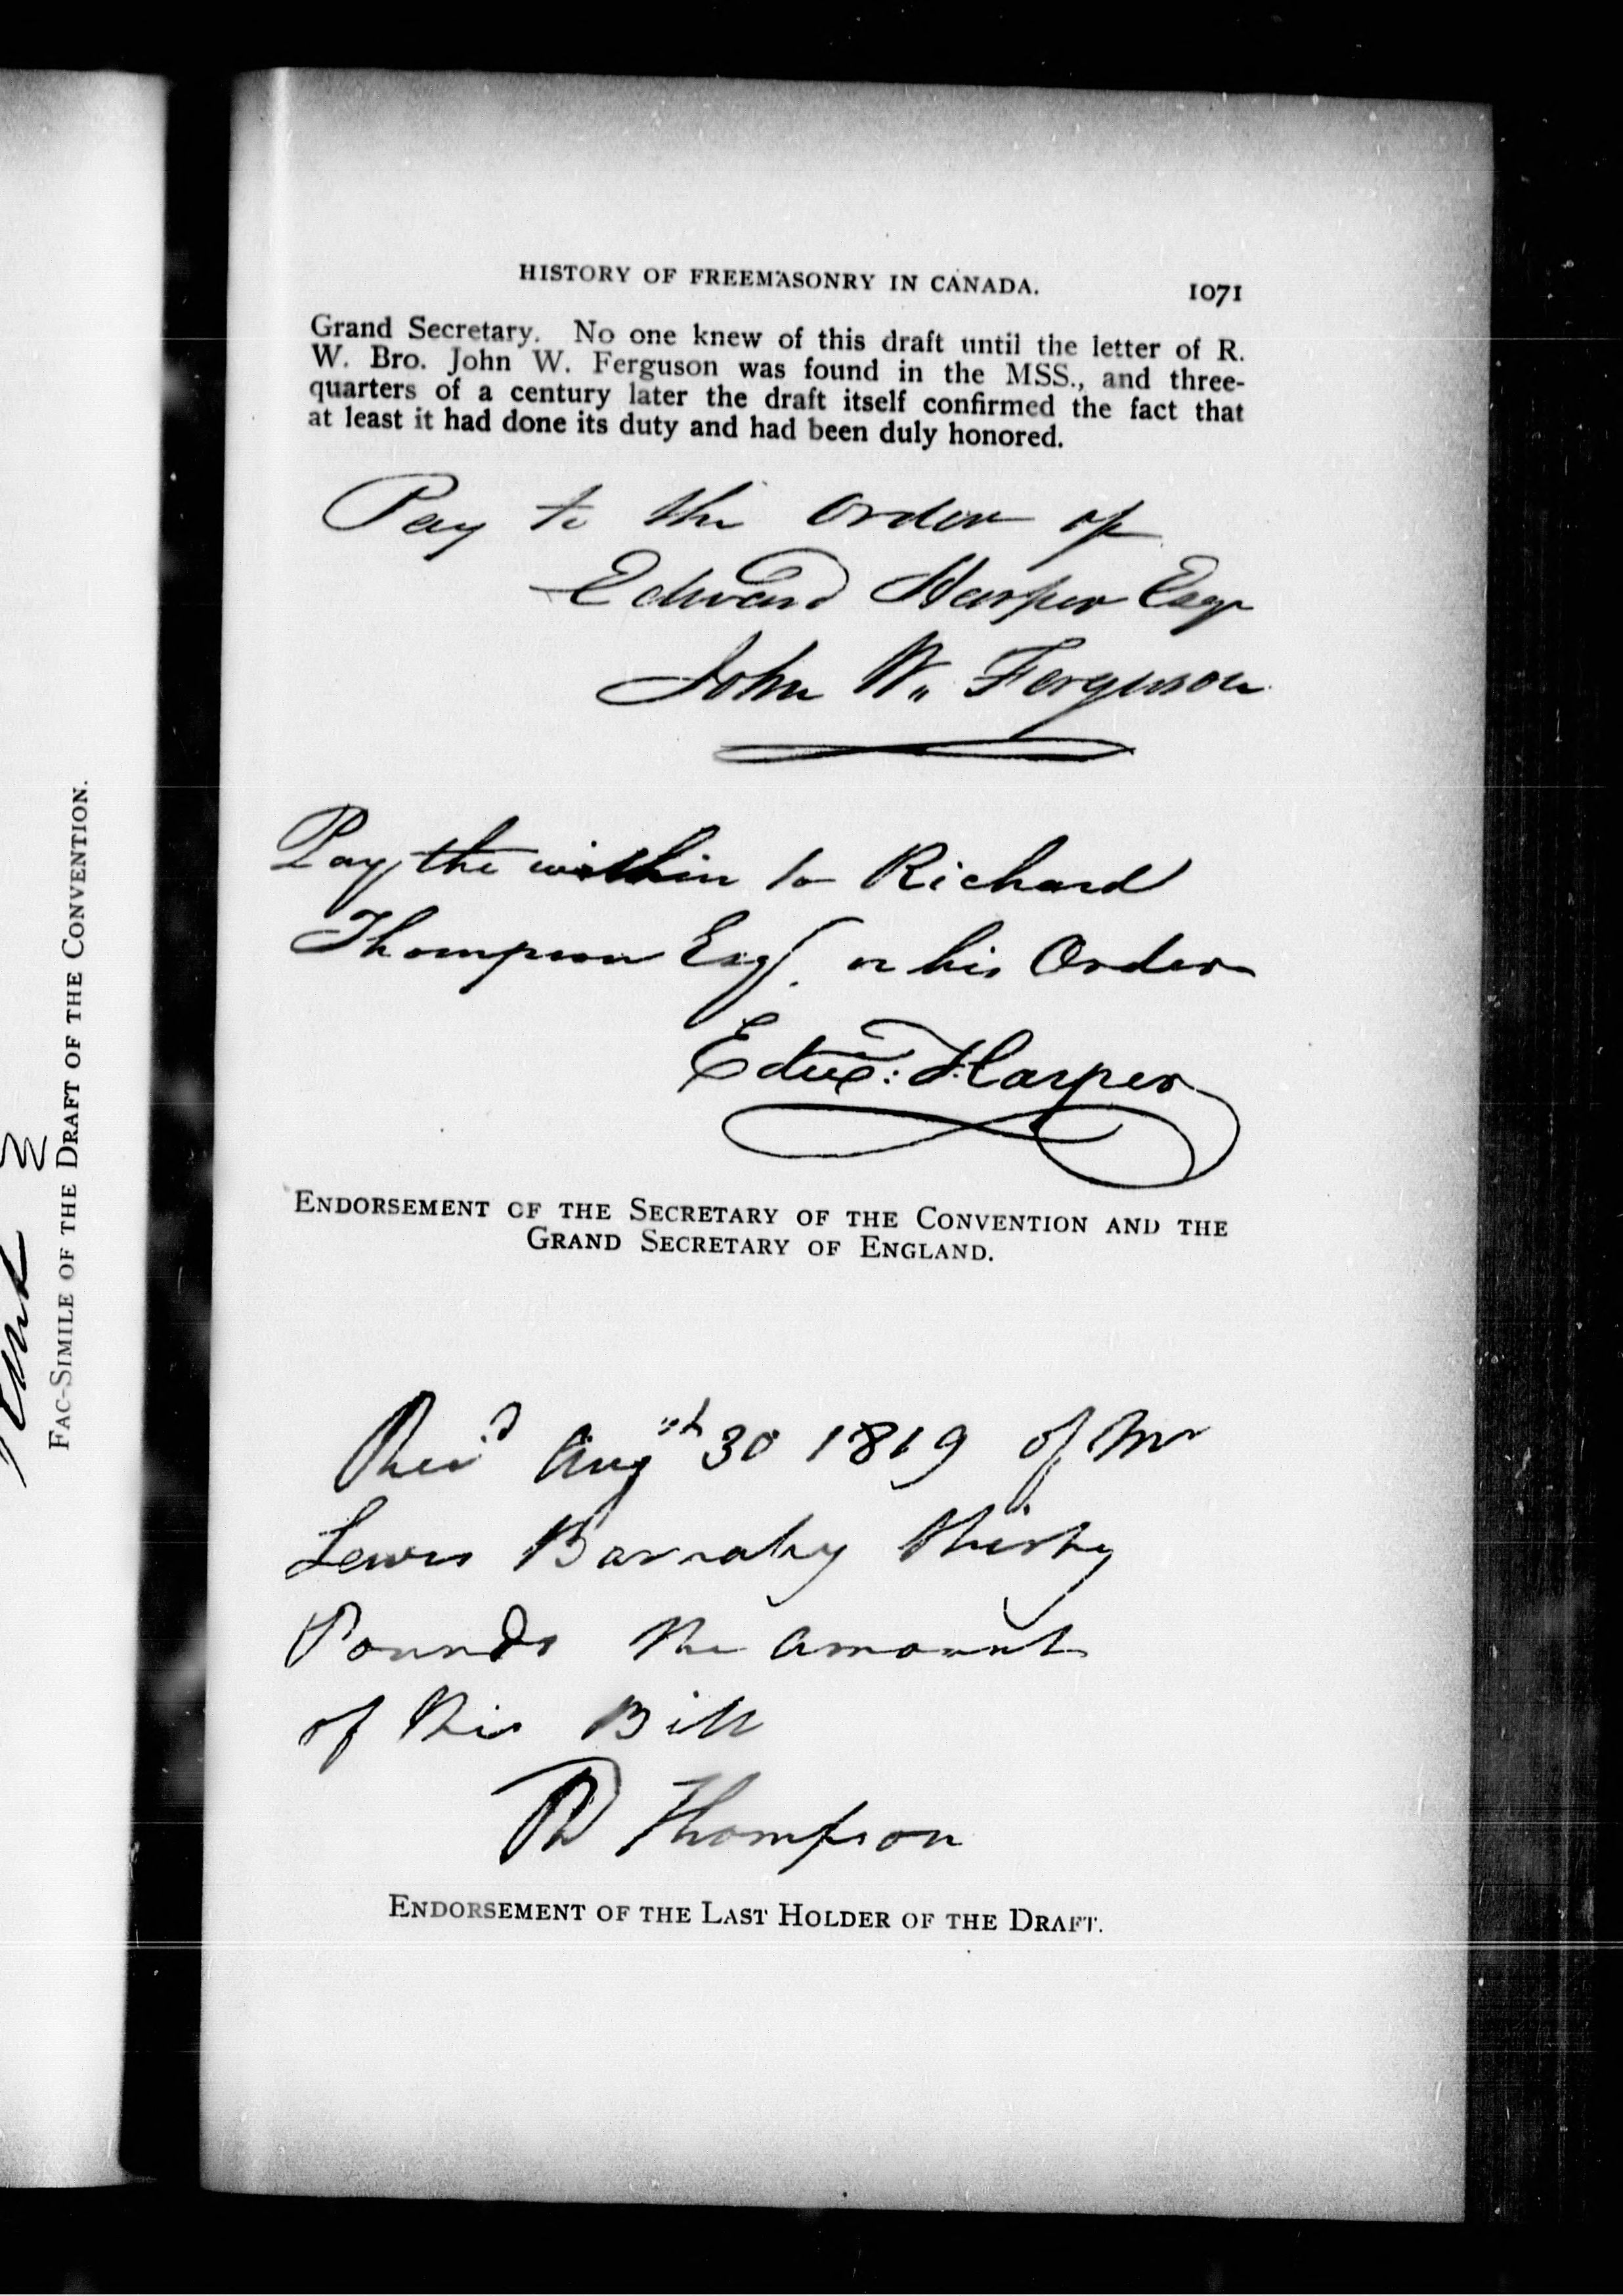 HISTORY OF FREEMASONRY IN CANADA. 1071
Grand Secretary. No one knew of this draft until the letter of R.
W. Bro. John W. Ferguson was found in the MSS., and three-
quarters of a century later the draft itself confirmed the fact that
at least it had done its duty and had been duly honored.
Pay to the order of
Edward Harper Esqr
John W. Ferguson
Pay the within to Richard
Thompson Esqr. or his Order
Edwd: Harper
ENDORSEMENT OF THE SECRETARY OF THE CONVENTION AND THE
GRAND SECRETARY OF ENGLAND.
Recd Augst 30 1819 of Mr
Lewis Barnaby thirty
Pounds the amount
of this Bill
Rd Thompson
ENDORSEMENT OF THE LAST HOLDER OF THE DRAFT.
FAC-SIMILE OF THE DRAFT OF THE CONVENTION.